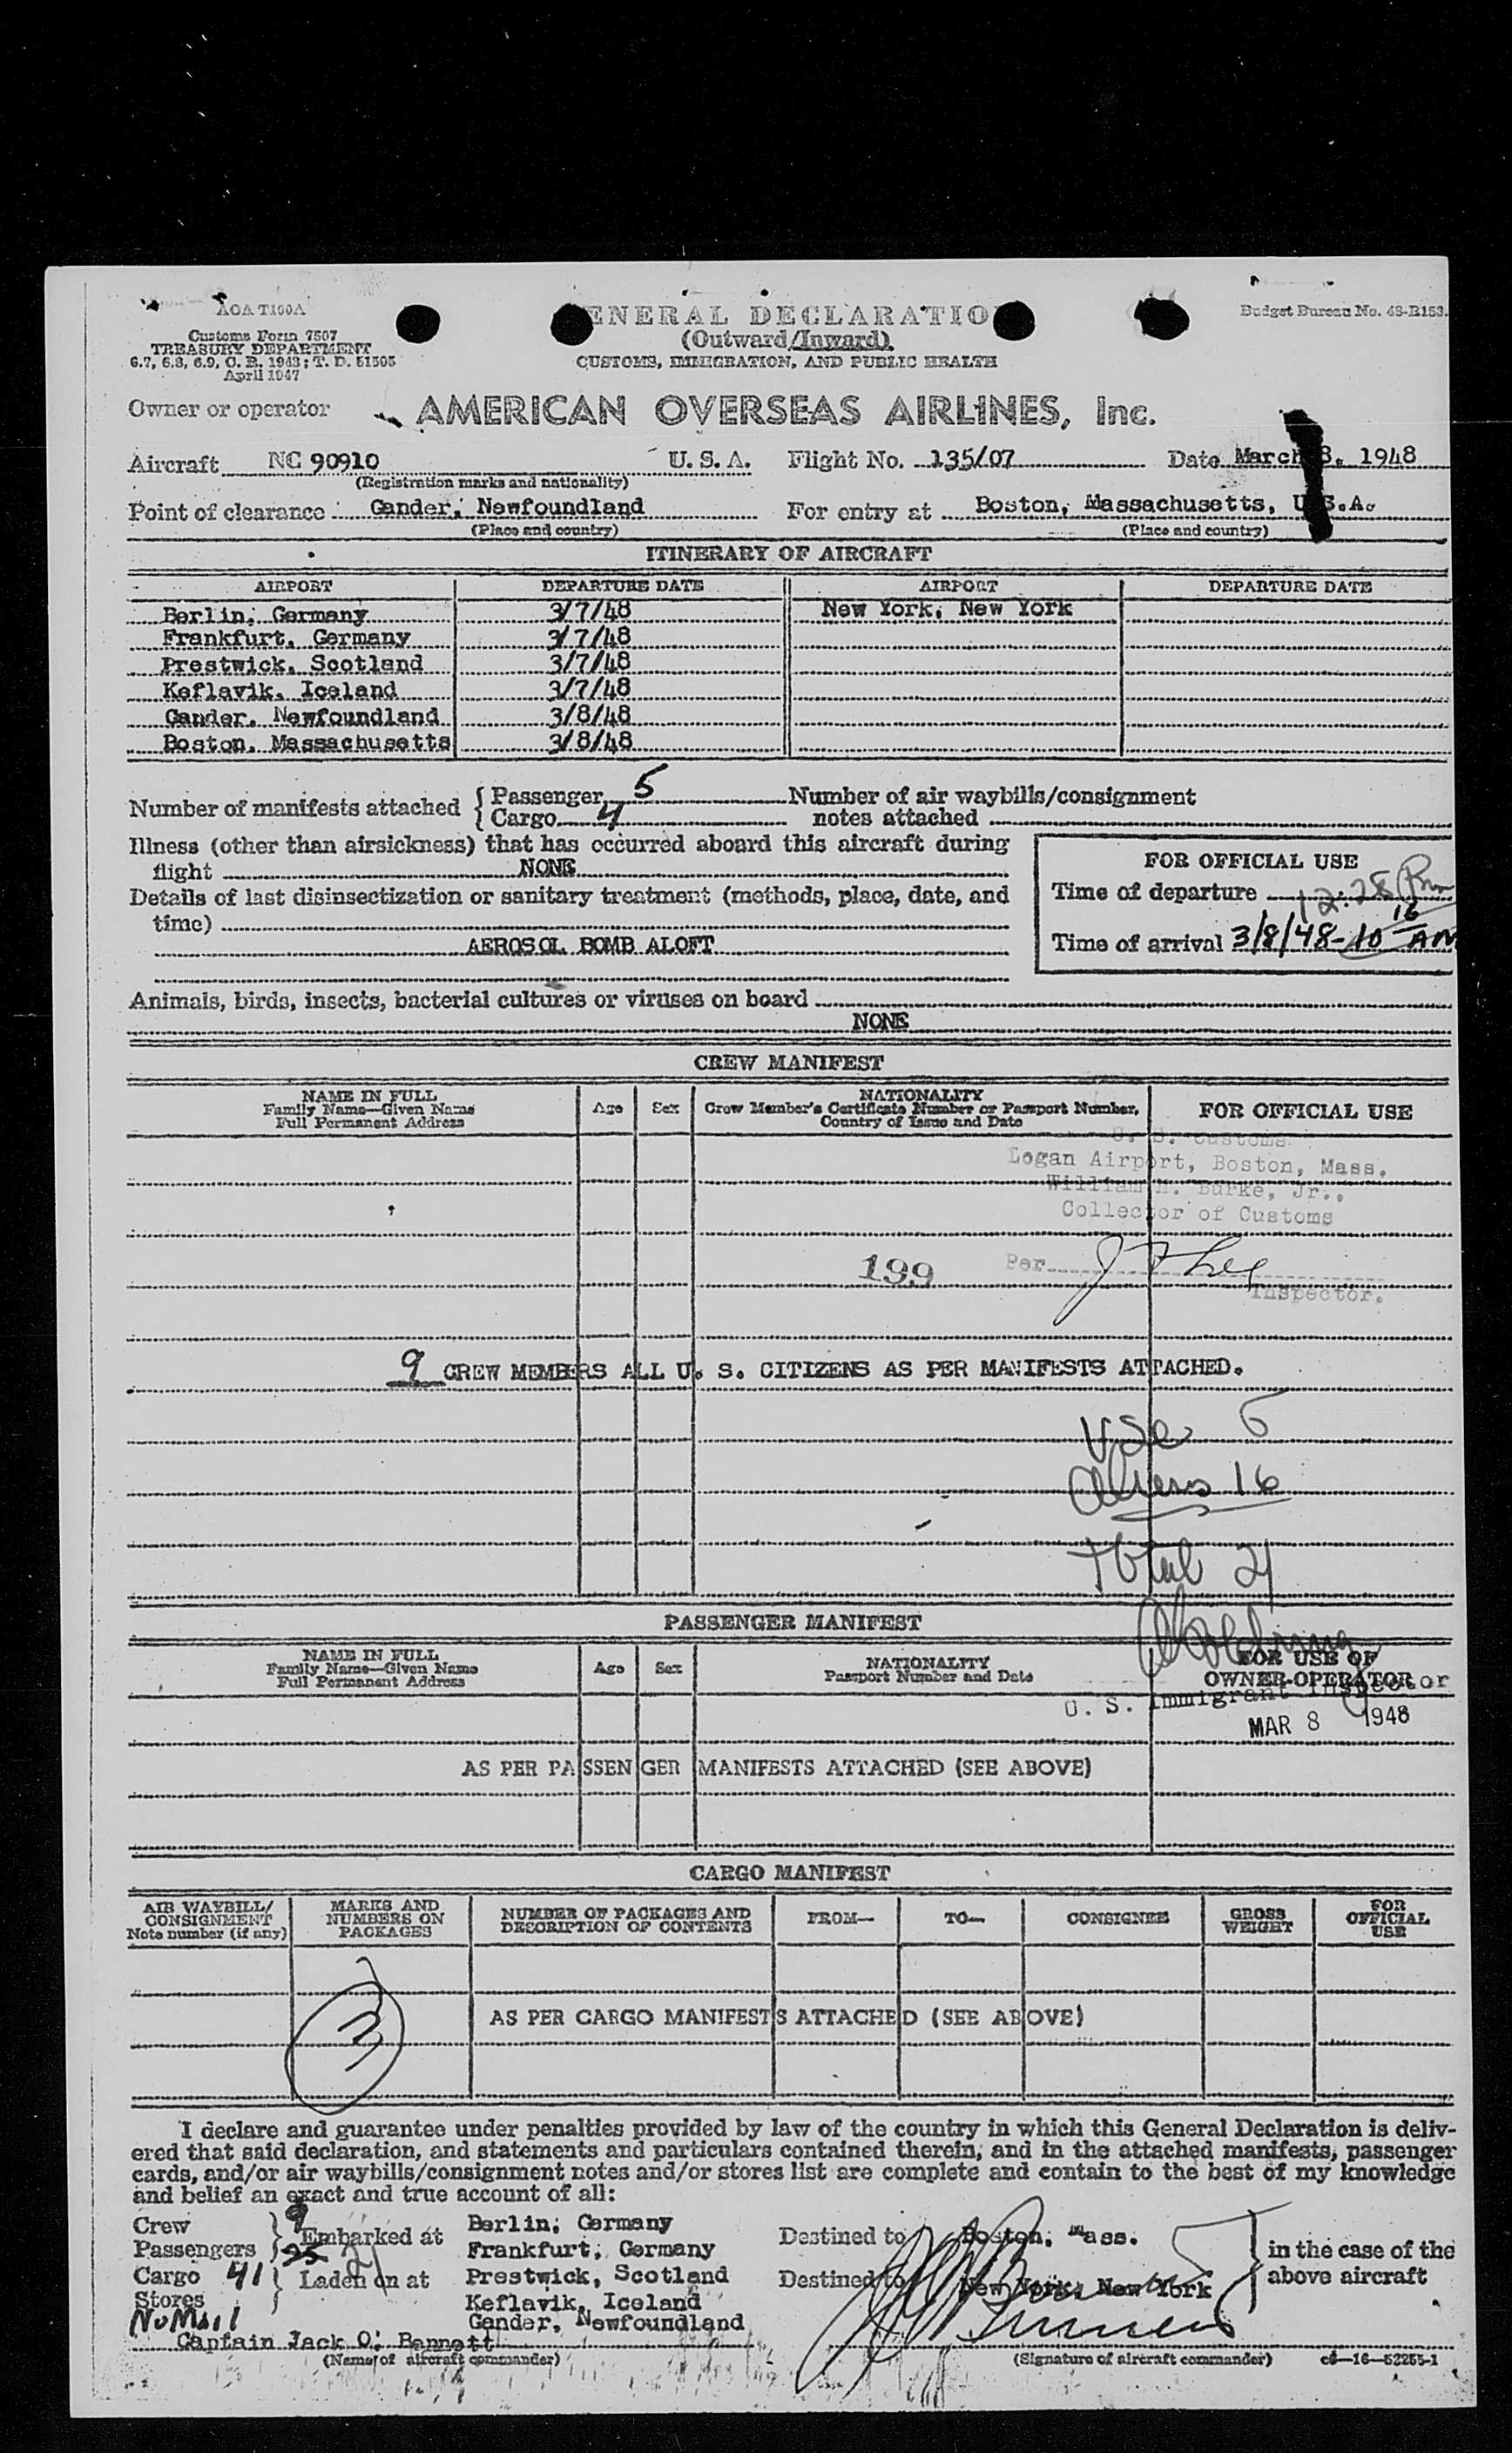 AOA T100A
Customs Form 7507
TREASURY DEPARTMENT
6.7, 6.8, 6.9, C. R. 1943; T. D. 51505
April 1947
GENERAL DECLARATIO
(Outward/Inward)
CUSTOMS, IMMIGRATION, AND PUBLIC HEALTH
Budget Bureau No. 48-R153.
Owner or operator AMERICAN OVERSEAS AIRLINES, Inc.
Aircraft NC 90910 U. S. A. Flight No. 135/07 Date March 8, 1948
(Registration marks and nationality)
Point of clearance Gander, Newfoundland For entry at Boston, Massachusetts, U.S.A.
(Place and country) (Place and country)
ITINERARY OF AIRCRAFT
AIRPORT DEPARTURE DATE AIRPORT DEPARTURE DATE
Berlin, Germany 3/7/48 New York, New York
Frankfurt, Germany 3/7/48
Prestwick, Scotland 3/7/48
Keflavik, Iceland 3/7/48
Gander, Newfoundland 3/8/48
Boston, Massachusetts 3/8/48
Number of manifests attached { Passenger 5 Number of air waybills/consignment
{ Cargo 4 notes attached
Illness (other than airsickness) that has occurred aboard this aircraft during
flight NONE
Details of last disinsectization or sanitary treatment (methods, place, date, and
time)
AEROSOL BOMB ALOFT
FOR OFFICIAL USE
Time of departure 12:28 Pm
Time of arrival 3/8/48-10 16 AM
Animals, birds, insects, bacterial cultures or viruses on board
NONE
CREW MANIFEST
NAME IN FULL
Family Name—Given Name
Full Permanent Address
Age
Sex
NATIONALITY
Crew Member's Certificate Number or Passport Number,
Country of Issue and Date
FOR OFFICIAL USE
U. S. Customs
Logan Airport, Boston, Mass.
William H. Burke, Jr.,
Collector of Customs
199 Per J F Lee
Inspector.
9 CREW MEMBERS ALL U. S. CITIZENS AS PER MANIFESTS ATTACHED.
USC 5
Aliens 16
Total 21
PASSENGER MANIFEST
NAME IN FULL
Family Name—Given Name
Full Permanent Address
Age
Sex
NATIONALITY
Passport Number and Date
FOR USE OF
OWNER-OPERATOR
U. S. Immigrant Inspector
MAR 8 1948
AS PER PASSENGER MANIFESTS ATTACHED (SEE ABOVE)
CARGO MANIFEST
AIR WAYBILL/
CONSIGNMENT
Note number (if any)
MARKS AND
NUMBERS ON
PACKAGES
NUMBER OF PACKAGES AND
DESCRIPTION OF CONTENTS
FROM—
TO—
CONSIGNEE
GROSS
WEIGHT
FOR
OFFICIAL
USE
AS PER CARGO MANIFESTS ATTACHED (SEE ABOVE)
I declare and guarantee under penalties provided by law of the country in which this General Declaration is deliv-
ered that said declaration, and statements and particulars contained therein, and in the attached manifests, passenger
cards, and/or air waybills/consignment notes and/or stores list are complete and contain to the best of my knowledge
and belief an exact and true account of all:
Crew 9
Passengers 25 21
Cargo 41
Stores
No Mail
Embarked at
Laden on at
Berlin, Germany
Frankfurt, Germany
Prestwick, Scotland
Keflavik, Iceland
Gander, Newfoundland
Destined to Boston, Mass.
Destined to New York, New York
in the case of the
above aircraft
Captain Jack O. Bennett
(Name of aircraft commander) (Signature of aircraft commander) c6—16—52255-1